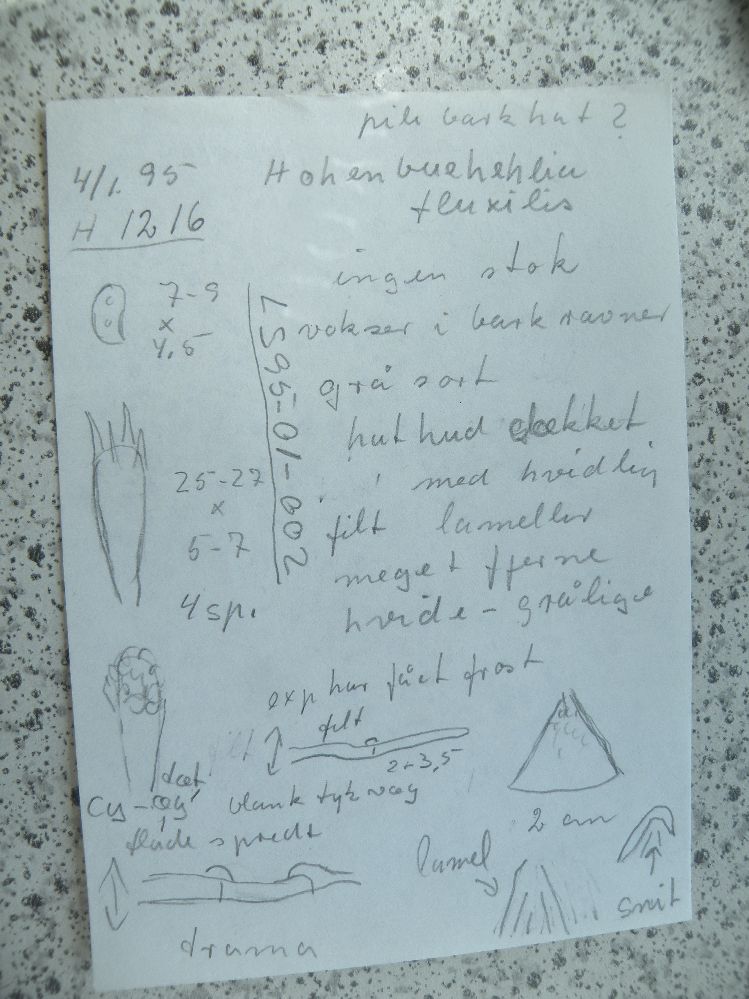 pile barkhat?
4/1. 95
Hohenbuehehlia
fluxilis
H 1216
ingen stok
7-9
x
4,5
LS95-01-002
vokser i barkravner
grå sort
hathud dækket
med hvidlig
25-27
x
5-7
filt lameller
meget fjerne
4 sp.
hvide-grålige
exp har fået frost
filt
filt
2-3,5
blank tyk væg
2 cm
Cy-æg
flade spredt
lamel
snit
trama